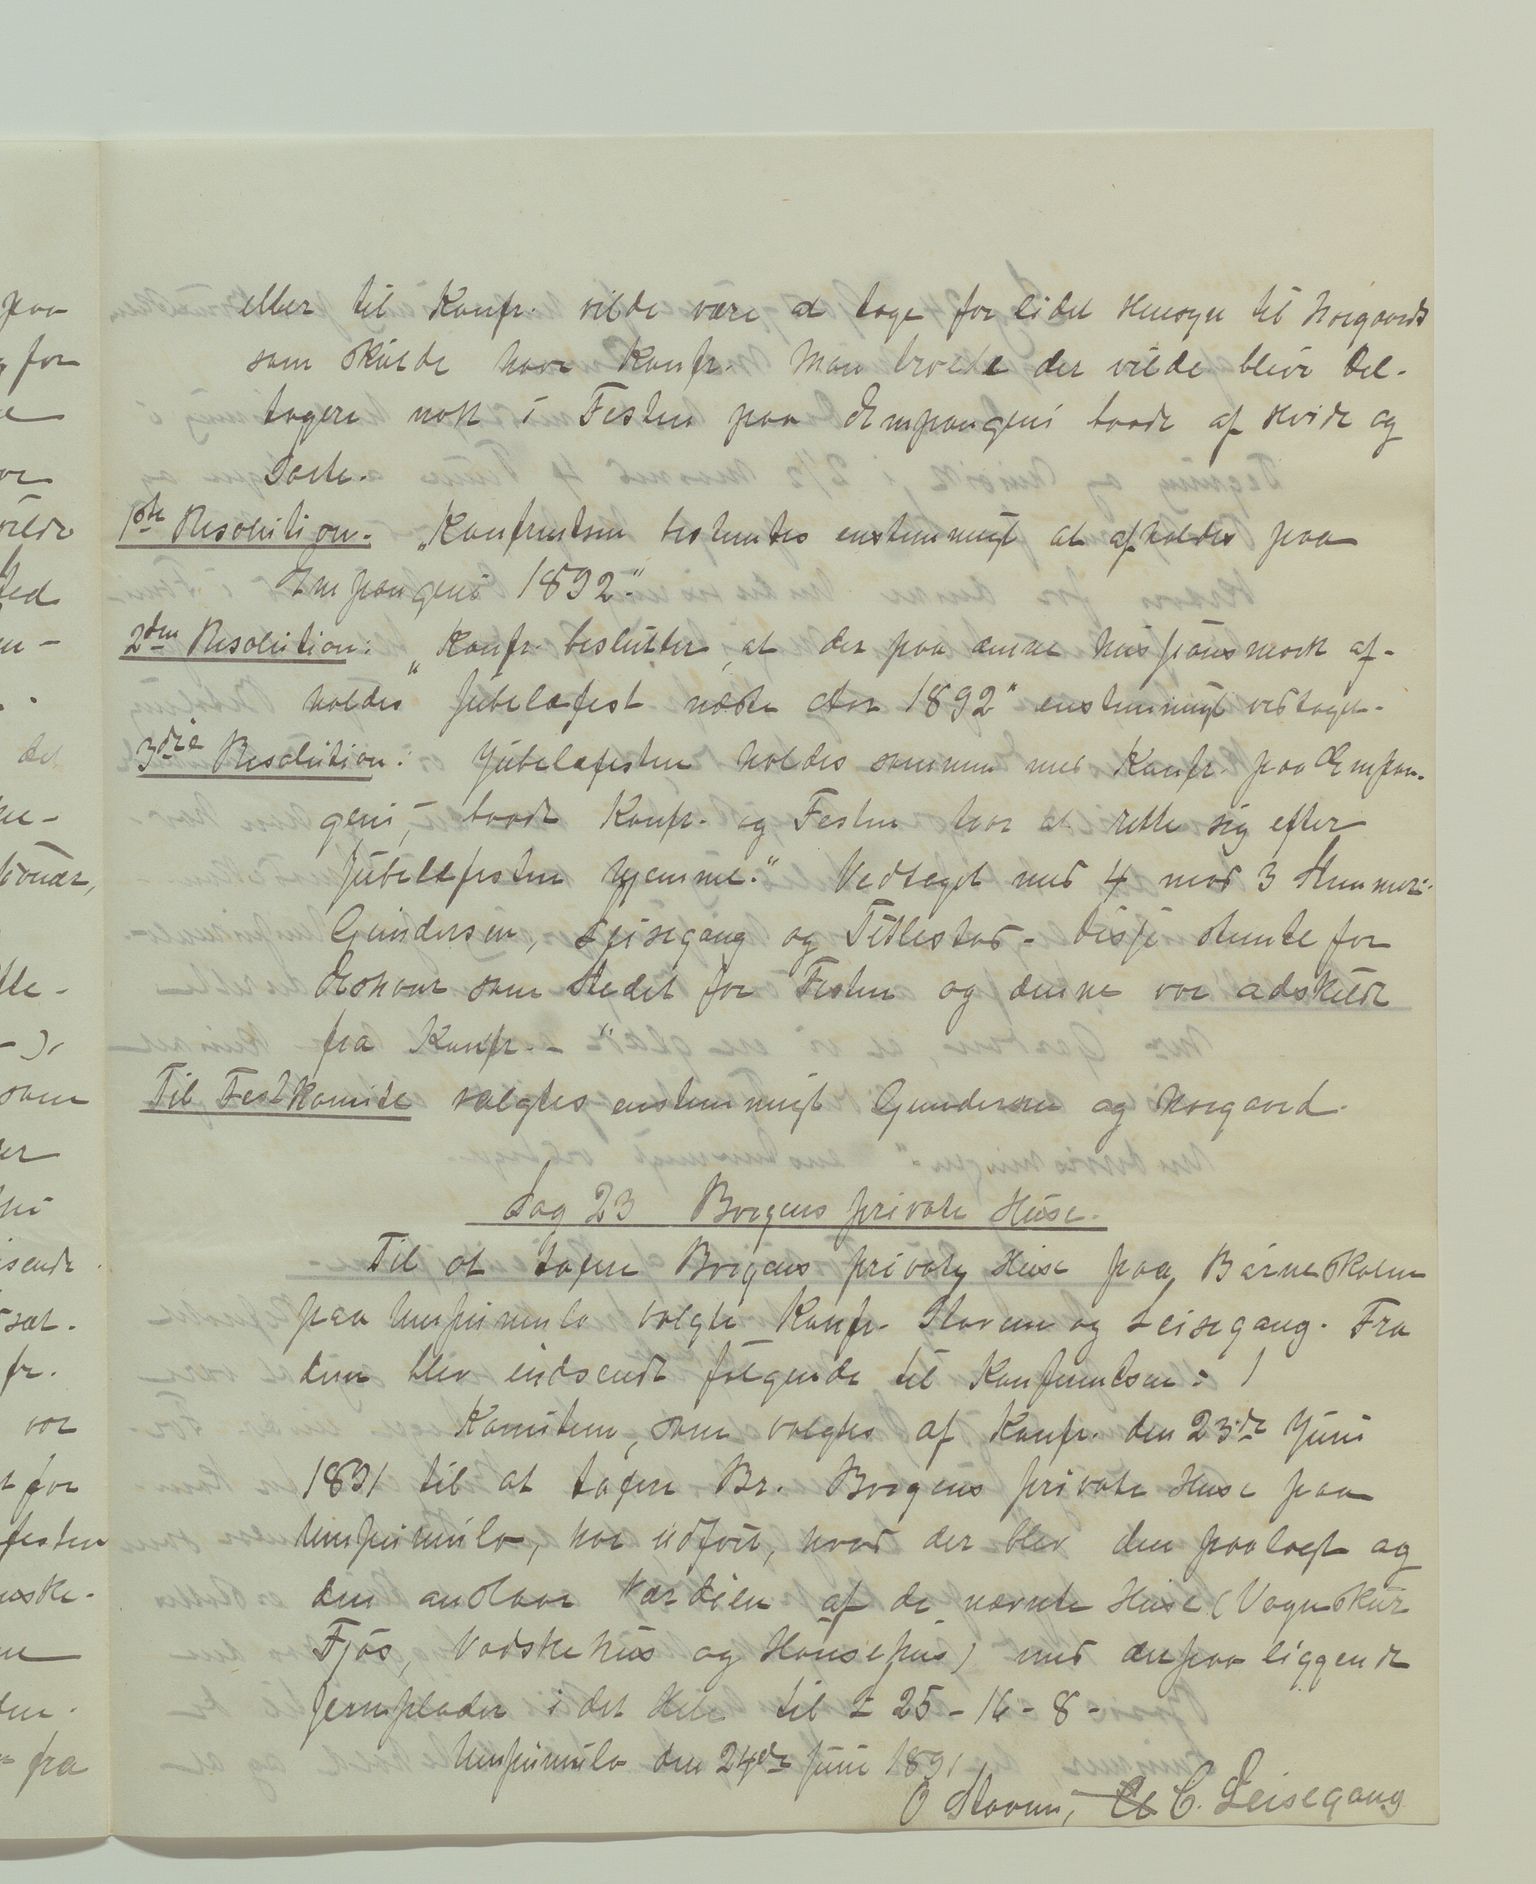 eller til Konfr. vilde være at tage for lidet Hensyn til Norgaards
som skulde have Konfr. Man troede der vilde blive Del-
tagere nok i Festen paa Empangeni baade af Hvide og
Sorte.
1ste Resolution. „Konferentsen bestemtes enstemmigt at afholdes paa
Empangeni 1892."
2den Resolution: „Konfr. beslutter, at der paa denne Missionsmark af-
holdes Jubelæfest næste Aar 1892" enstemmigt vedtaget.
3die Resolution: Jubelæfesten holdes sammen med Konfr. paa Empan-
geni, baade Konfr. og Festen har at rette sig efter
Jubelæfesten hjemme." Vedtaget med 4 mod 3 Stemmer:
Gundersen, Leisegang og Titlestad - disse stemte for
Eshowe som Stedet for Festen og denne var adskildt
fra Konfr. - "
Til Festkomite valgtes enstemmigt Gundersen og Norgaard.
Sag 23 Borgens private Huse.
Til at taxere Borgens private Huse paa Børneskolen
paa Umpumulo valgte Konfr. Stavem og Leisegang. Fra
dem blev indsendt følgende til Konferentsen: /
Komiteen, som valgtes af Konfr. den 23de Juni
1891 til at taxere Br. Borgens private Huse paa
Umpumulo, har udført, hvad der blev den paalagt og
den anslaar Værdien af de nævnte Huse (Vognskur
Fjøs, Vadskehus og Hønsehus) med derpaa liggende
Jernplader i det Hele til £ 25 - 16 - 8 -
Umpumulo den 24de Juni 1891
O Stavem, C. Leisegang
paa
for
vilde
ted
det
som
sendt
sat.
fr.
var
for
festen
fra